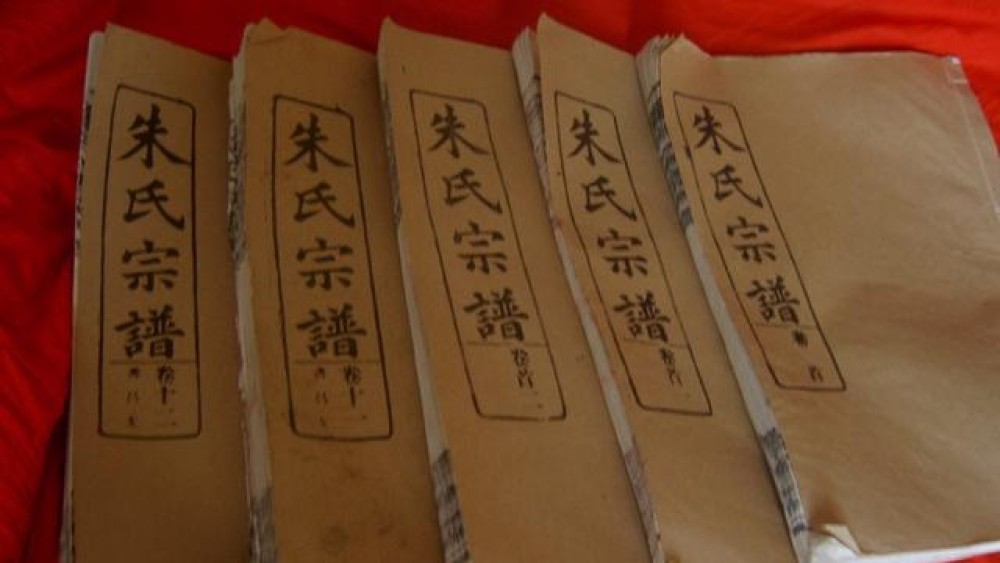 朱氏宗譜
卷十二
朱氏宗譜
卷十一
朱氏宗譜
卷首二
朱氏宗譜
卷首一
朱氏宗譜
首